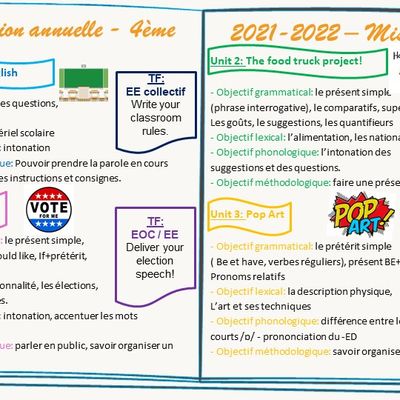 ion annuelle - 4ème
lish
es questions,
ériel scolaire
: intonation
ue: Pouvoir prendre la parole en cours
es instructions et consignes.
TF:
EE collectif
Write your
classroom
rules.
VOTE
FOR ME
: le présent simple,
ould like, If+prétérit,
onnalité, les élections,
es.
: intonation, accentuer les mots
ue: parler en public, savoir organiser un
TF:
EOC / EE
Deliver your
election
speech!
2021-2022 – Mis
Unit 2: The food truck project!
- Objectif grammatical: le présent simple
(phrase interrogative), le comparatifs, supe
Les goûts, le suggestions, les quantifieurs
- Objectif lexical: l'alimentation, les nationa
- Objectif phonologique: l'intonation des
suggestions et des questions.
- Objectif méthodologique: faire une prése
Unit 3: Pop Art
POP
ART!
- Objectif grammatical: le prétérit simple
( Be et have, verbes réguliers), présent BE+
Pronoms relatifs
- Objectif lexical: la description physique,
L'art et ses techniques
- Objectif phonologique: différence entre le
courts /ɒ/ - prononciation du -ED
- Objectif méthodologique: savoir organise